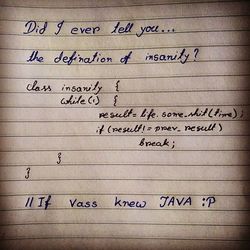 Did I ever tell you...
the defination of insanity?
class insanity {
while(1) {
result= life.some_shit(time);
if (result!= prev_result)
break;
}
}
//If vass knew JAVA :P